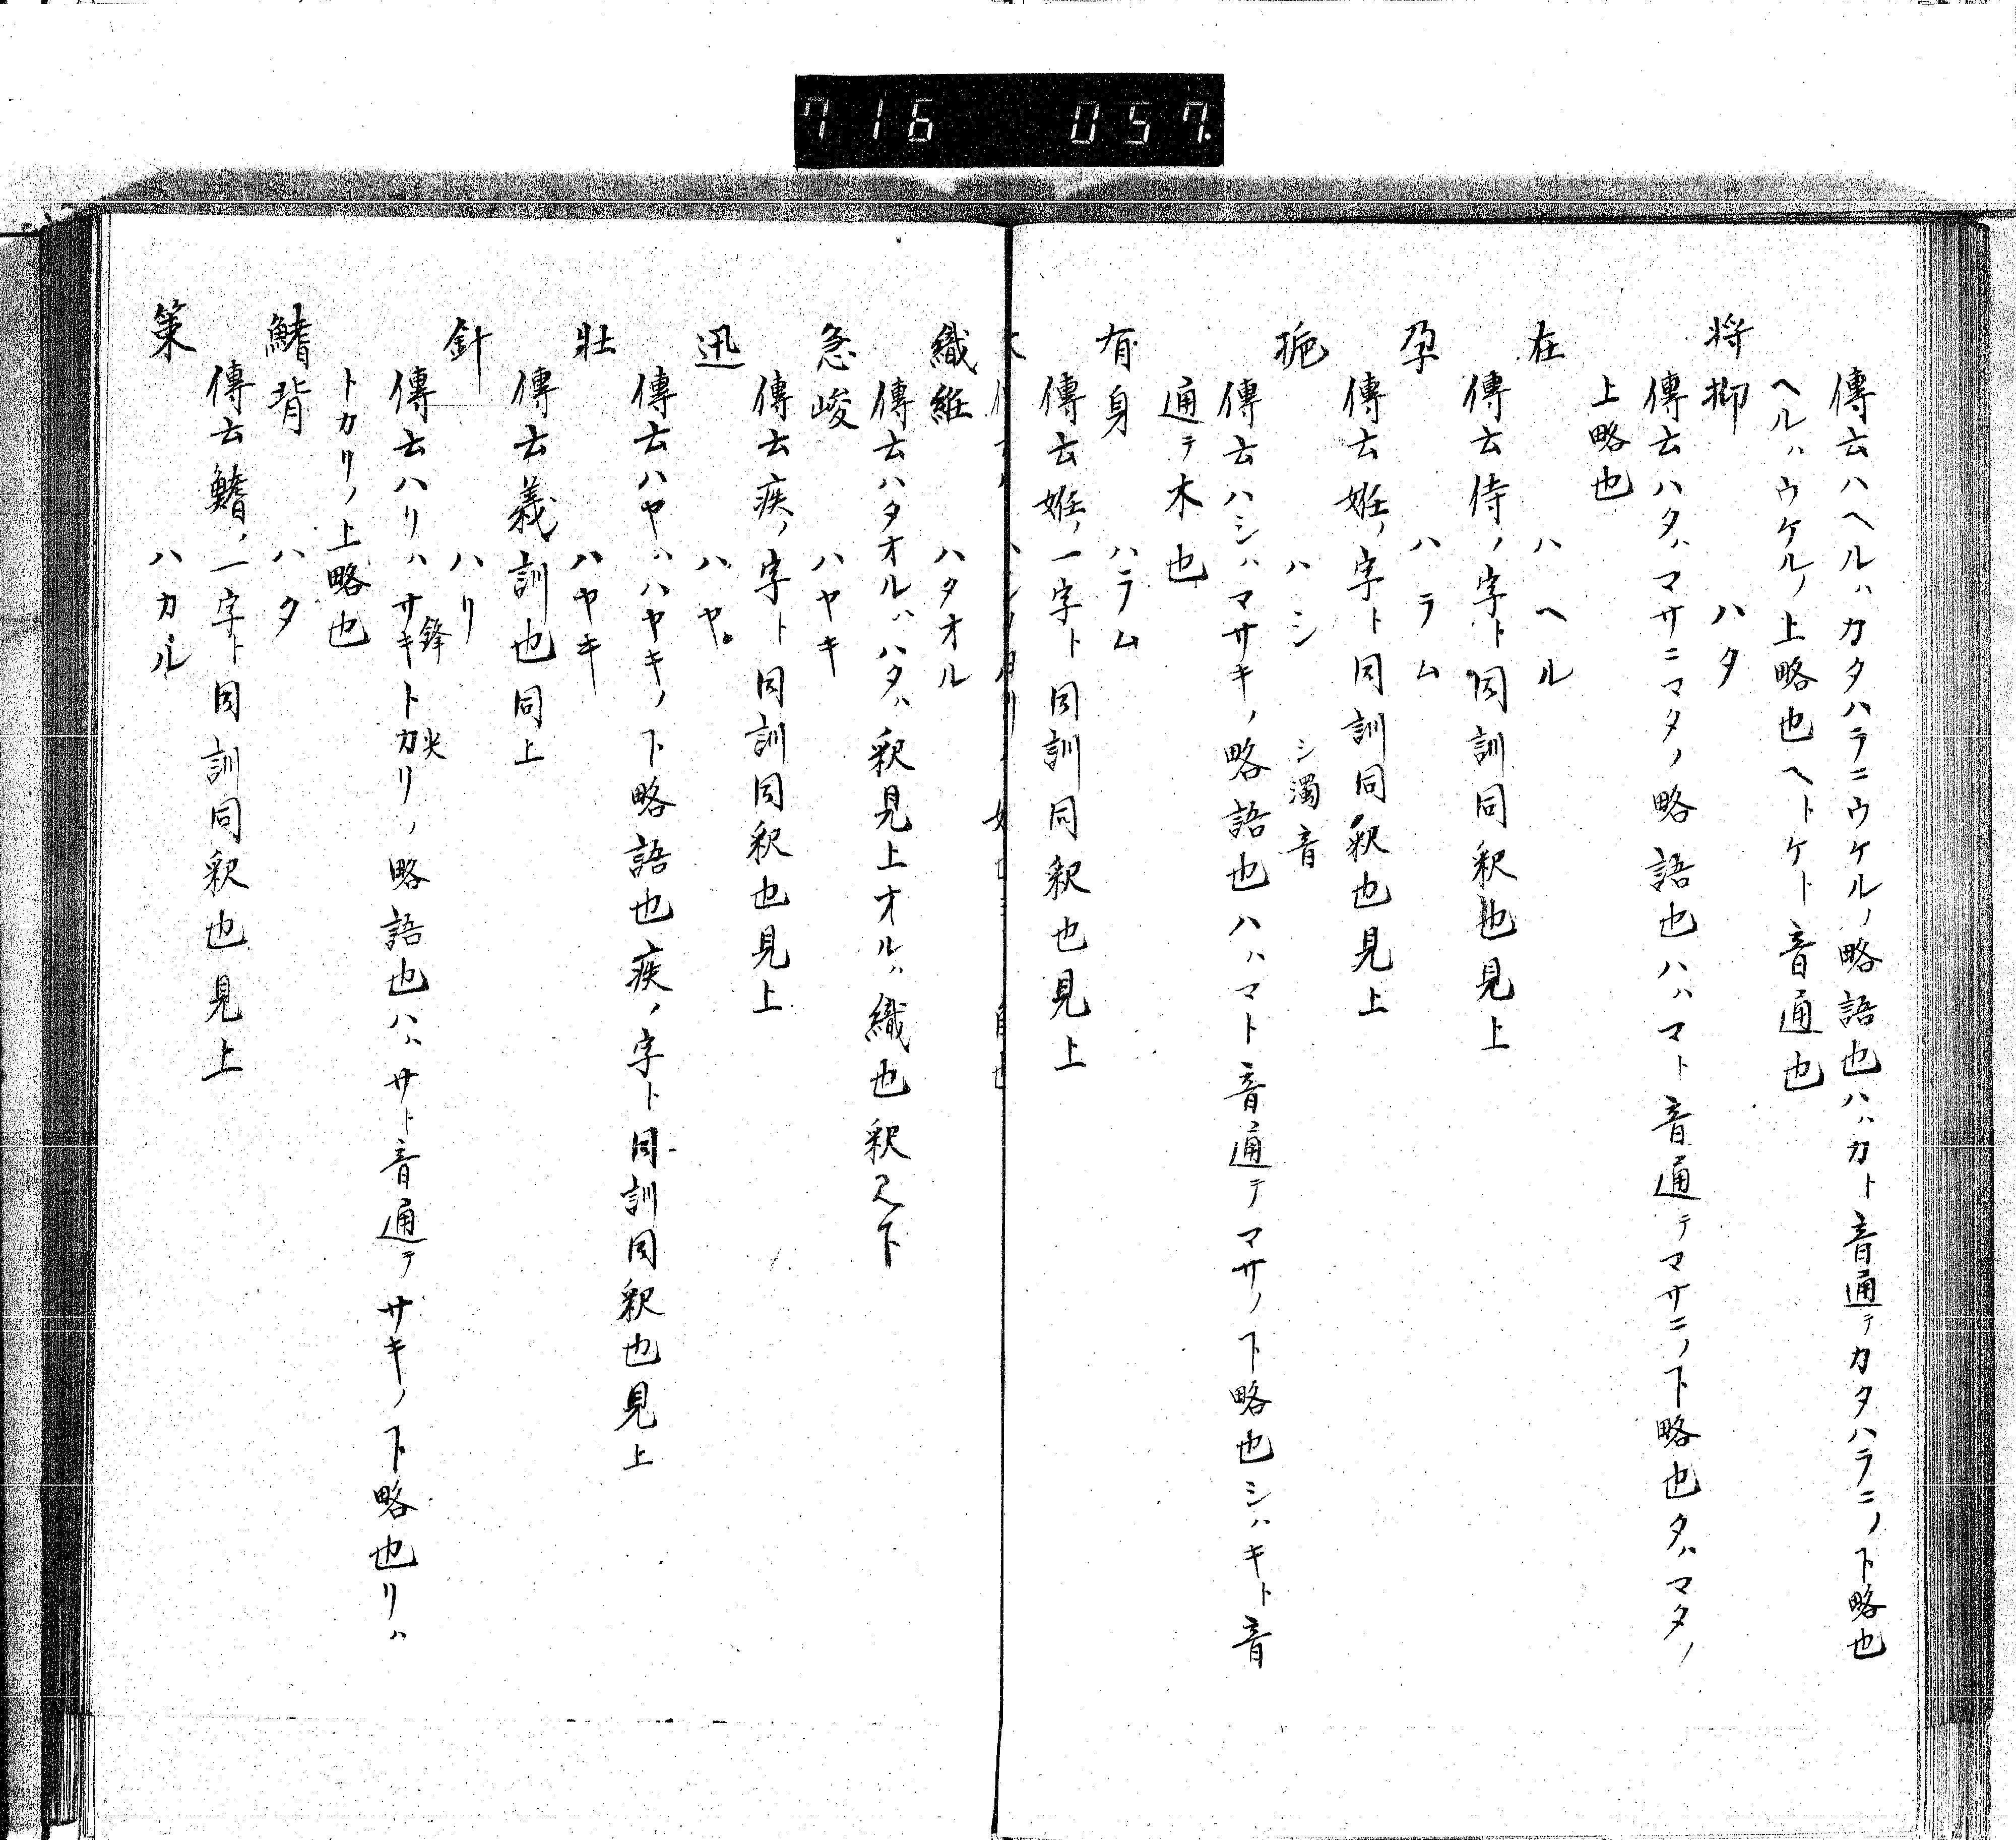 716 057.
傳云ハヘルハカタハラニウケルノ略語也ハハカト音通テカタハラニノ下略也
ヘルハウケルノ上略也ヘトケト音通也
将抑 ハタ
傳云ハタハマサニマタノ略語也ハハマト音通テマサニノ下略也タハマタノ
上略也
在 ハヘル
傳云侍ノ字ト同訓同釈也見上
孕 ハラム
傳云姙ノ字ト同訓同釈也見上
㧞 ハシ シ濁音
傳云ハシハマサキノ略語也ハハマト音通テマサノ下略也シハキト音
通テ木也
有身 ハラム
傳云姙ノ一字ト同訓同釈也見上
織絍 ハタオル
傳云ハタオルハハタハ釈見上オルハ織也釈見下
急峻 ハヤキ
傳云疾ノ字ト同訓同釈也見上
迅 ハヤ
傳云ハヤハハヤキノ下略語也疾ノ字ト同訓同釈也見上
壮 ハヤキ
傳云義訓也同上
針 ハリ
傳云ハリハサキトカリノ略語也ハハサト音通テサキノ下略也リハ
鋒 尖
トカリノ上略也
鰭背 ハタ
傳云鰭ノ一字ト同訓同釈也見上
策 ハカル